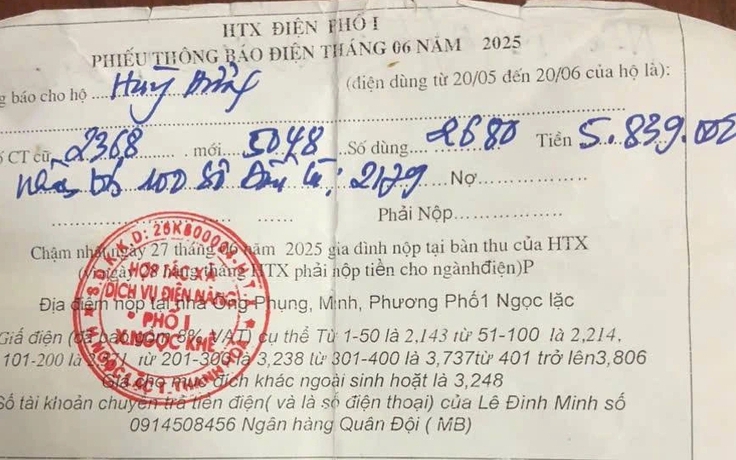 HTX ĐIỆN PHỐ I
PHIẾU THÔNG BÁO ĐIỆN THÁNG 06 NĂM 2025
g báo cho hộ Huỳ (điện dùng từ 20/05 đến 20/06 của hộ là):
ố CT cũ 2368 mới 5048 Số dùng 2680 Tiền 5.839.000
100 số 2179 Nợ
Phải Nộp
Chậm nhất ngày 27 tháng 06 năm 2025 gia dình nộp tại bàn thu của HTX
(vì ngày 08 hàng tháng HTX phải nộp tiền cho ngànhđiện)P
Địa điểm nộp tại nhà Ông Phụng, Minh, Phương Phố1 Ngọc lặc
Giấ điện (đã bao gồm 8% VAT) cụ thể Từ 1-50 là 2,143 từ 51-100 là 2,214,
101-200 là từ 201-300 là 3,238 từ 301-400 là 3,737từ 401 trở lên3,806
Giá cho mục đích khác ngoài sinh hoặt là 3,248
Số tài khoản chuyển trả tiền điện( và là số điện thoại) của Lê Đình Minh số
0914508456 Ngân hàng Quân Đội ( MB)
HỢP TÁC XÃ
DỊCH VỤ ĐIỆN NĂNG
PHỐ I
X.NGỌC KHÊ